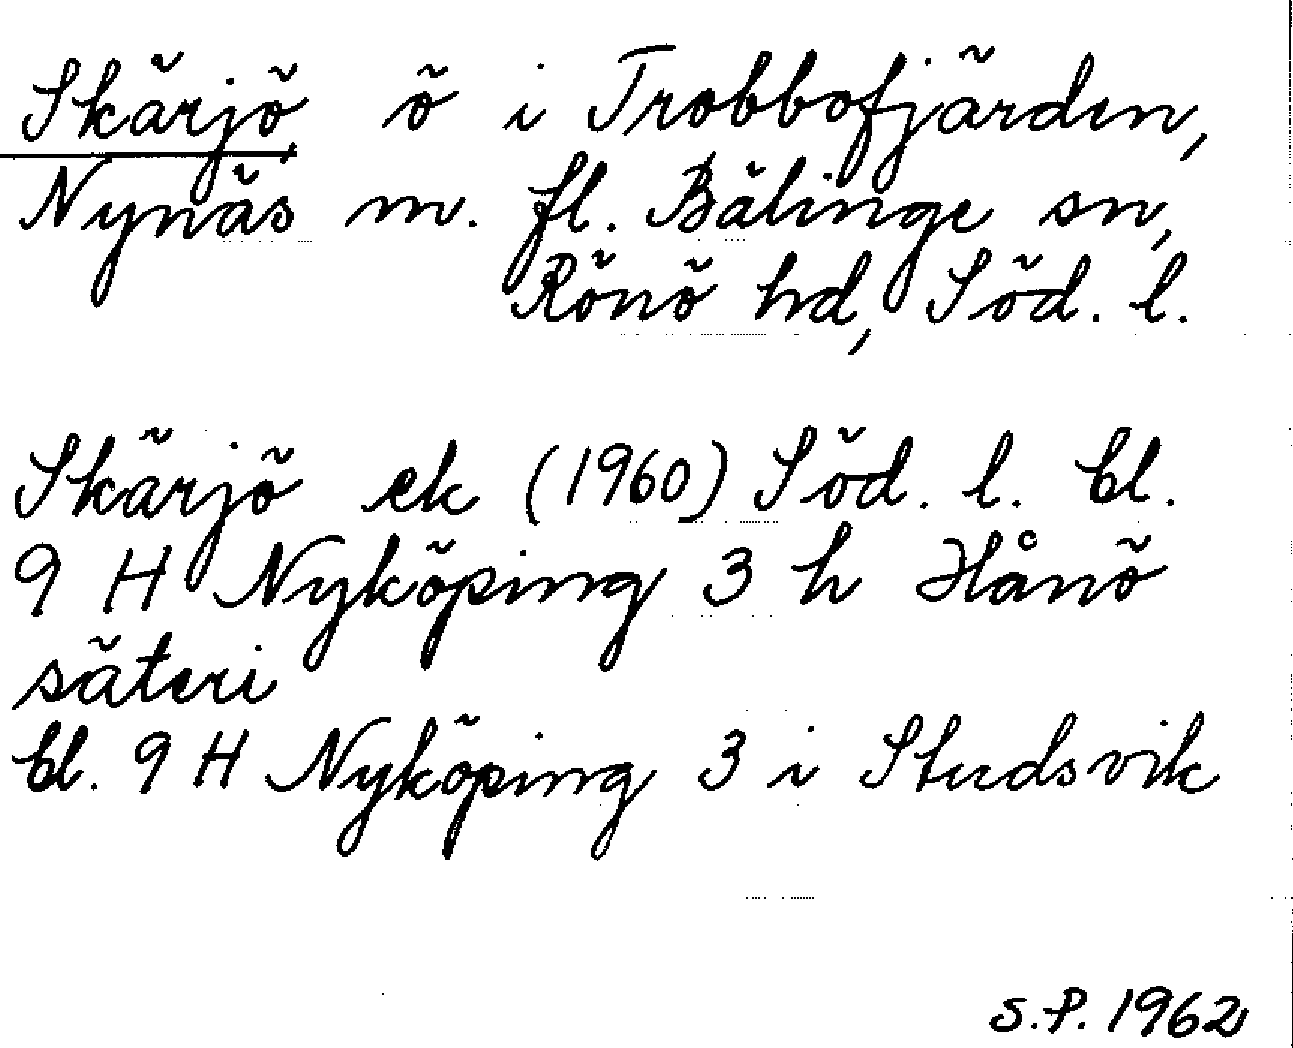 Skärjö, ö i Trobbofjärden,
Nynäs m. fl. Bälinge sn,
Rönö hd, Söd. l.
Skärjö ek (1960) Söd. l. bl.
9 H Nyköping 3 h Hånö
säteri
bl. 9 H Nyköping 3 i Studsvik
S.P. 1962